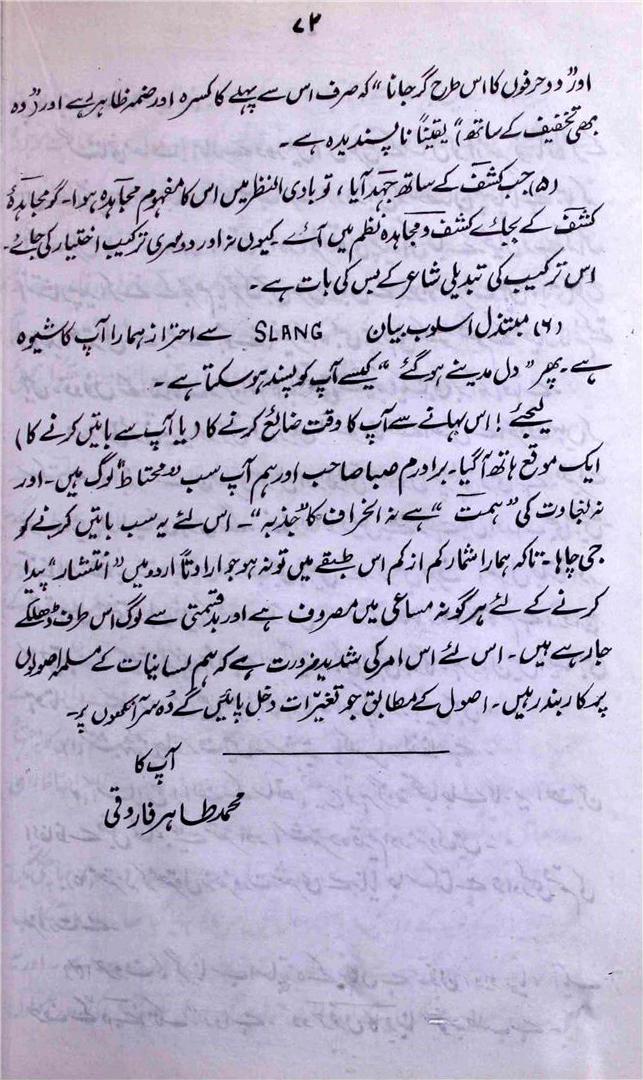 ۷۲
اور ” دو حرفوں کا اس طرح گر جانا “ کہ صرف اس سے پہلے کا کسرہ اور ضمہ ظاہر رہے اور ” وہ
بھی تخفیف کے ساتھ “ یقیناً ناپسندیدہ ہے ۔
(۵) جب کشف کے ساتھ جہد آیا ، تو بادی النظر میں اس کا مفہوم مجاہدہ ہوا ۔ گو مجاہدۂ
کشف کے بجائے کشف و مجاہدہ نظم میں آئے ۔ کیوں نہ اور دوسری ترکیب اختیار کی جائے ۔
اس ترکیب کی تبدیلی شاعر کے بس کی بات ہے ۔
(۶) مبتذل اسلوب بیان SLANG سے احتراز ہمارا آپ کا شیوہ
ہے ۔ پھر ” دل مدینے ہو گئے “ کیسے آپ کو پسند ہو سکتا ہے ۔
لیجئے ! اس بہانے سے آپ کا وقت ضائع کرنے کا ( یا آپ سے باتیں کرنے کا )
ایک موقع ہاتھ آ گیا ۔ برادرم صبا صاحب اور ہم آپ سب ” محتاط “ لوگ ہیں ۔ اور
نہ بغاوت کی ” ہمت “ ہے نہ انحراف کا ” جذبہ “ ۔ اس لئے یہ سب باتیں کرنے کو
جی چاہا ۔ تاکہ ہمارا شمار کم از کم اس طبقے میں تو نہ ہو جو ارادتاً اردو میں ” انتشار “ پیدا
کرنے کے لئے ہر گونہ مساعی میں مصروف ہے اور بدقسمتی سے لوگ اس طرف ڈھلکے
جا رہے ہیں ۔ اس لئے اس امر کی شدید ضرورت ہے کہ ہم لسانیات کے مسلمہ اصولوں
پر کاربند رہیں ۔ اصول کے مطابق جو تغیّرات دخل پائیں گے وہ سر آنکھوں پر ۔
آپ کا
محمد طاہر فاروقی